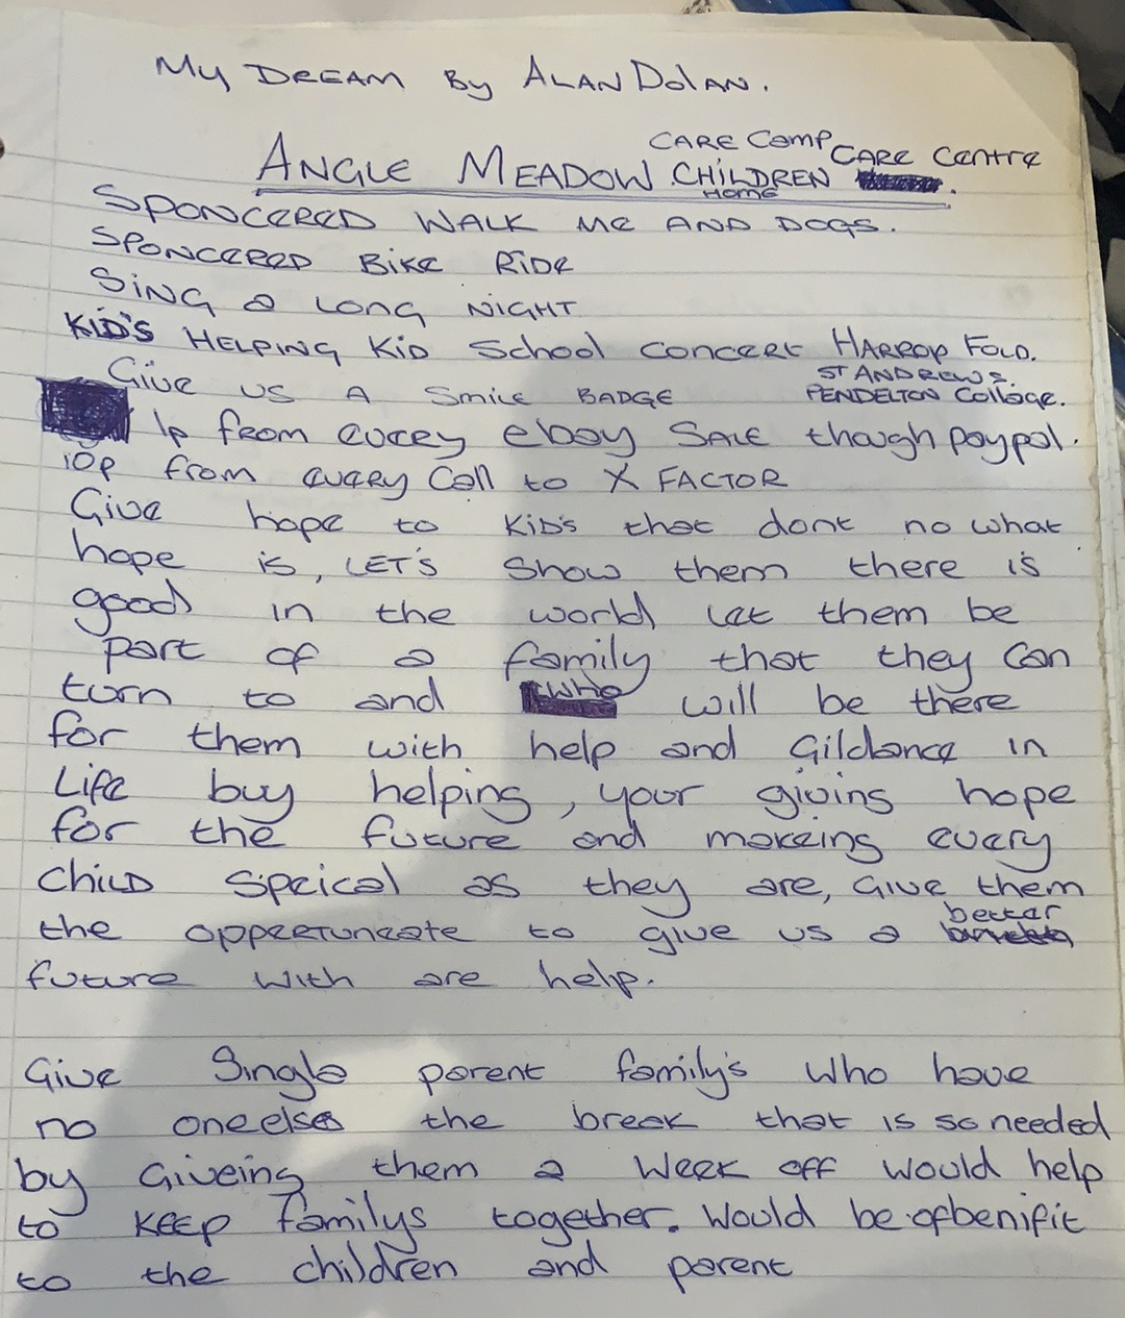 My DREAM By ALAN DOlAN.
CARE Comp CARE Centre
ANGLE MEADOW CHILDREN
HOME
SPONCERED WALK ME AND DOGS.
SPONCERED BIKE RIDE
SING a LONG NIGHT
KID'S HELPING KID School concert HARROP FOLD.
ST ANDREWS.
Give us A Smile BADGE PENDELTON Collage.
1p from every ebay SALE though paypal.
10p from every Call to X FACTOR
Give hope to KID's that dont no what
hope is, LET'S show them there is
good in the world let them be
part of a family that they can
turn to and who will be there
for them with help and Gildance in
Life buy helping, your giving hope
for the future and makeing every
CHILD Speical as they are, Give them
better
the oppertuneate to give us a
future with are help.
Give Single parent family's who have
no one else the break that is so needed
by Giveing them a week off would help
to keep familys together. Would be of benifit
to the children and parent